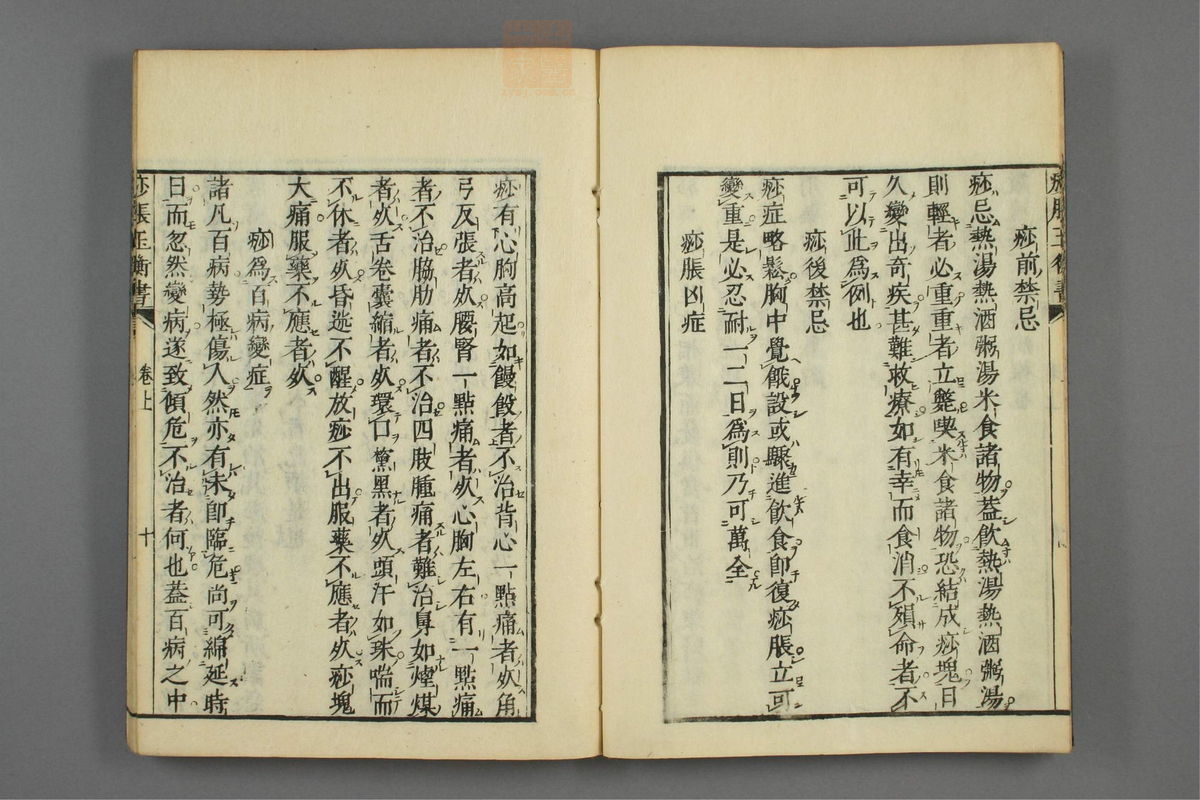 痧脹玉衡書
痧前禁忌
痧忌熱湯熱酒粥湯米食諸物蓋飲熱湯熱酒粥湯
則輕者必重重者立斃喫米食諸物恐結成痧塊日
久變出奇疾甚難救療如有幸而食消不殞命者不
可以此為例也
痧後禁忌
痧症略鬆胸中覺餓設或驟進飲食即復痧脹立可
變重是必忍耐一二日為則乃可萬全
痧脹凶症
痧有心胸高起如饅殷者不治背心一點痛者死角
弓反張者死腰腎一點痛者死心胸左右有一點痛
者不治脇肋痛者不治四肢腫痛者難治鼻如煙煤
者死舌卷囊縮者死環口黧黑者死頭汗如珠喘而
不休者死昏迷不醒放痧不出服藥不應者死痧塊
大痛服藥不應者死
痧為百病變症
諸凡百病勢極傷人然亦有未即臨危尚可綿延時
日而忽然變病遂致傾危不治者何也蓋百病之中
痧脹玉衡書 卷上 十